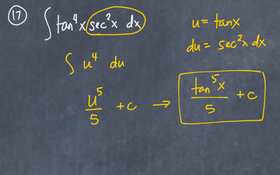 17 ∫ tan⁴x sec²x dx
u = tanx
du = sec²x dx
∫ u⁴ du
u⁵/5 + c → tan⁵x/5 + c